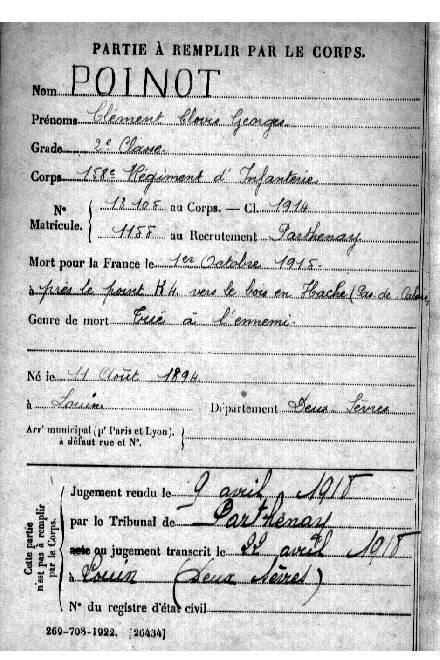 PARTIE À REMPLIR PAR LE CORPS.
Nom POINOT
Prénoms Clément Clovis Georges
Grade 2e Classe
Corps 158e Régiment d'Infanterie
N° Matricule. { 12108 au Corps. — Cl. 1914
1158 au Recrutement Parthenay
Mort pour la France le 1er Octobre 1915
à près le point H4 vers le bois en Hache (Pas de Calais)
Genre de mort Tué à l'ennemi
Né le 11 Août 1894
à Louin Département Deux Sèvres
Arrt municipal (pr Paris et Lyon), à défaut rue et N°.
Cette partie n'est pas à remplir par le Corps.
Jugement rendu le 9 avril 1918
par le Tribunal de Parthenay
acte ou jugement transcrit le 22 avril 1918
à Louin (Deux Sèvres)
N° du registre d'état civil
269-708-1922. [26434]